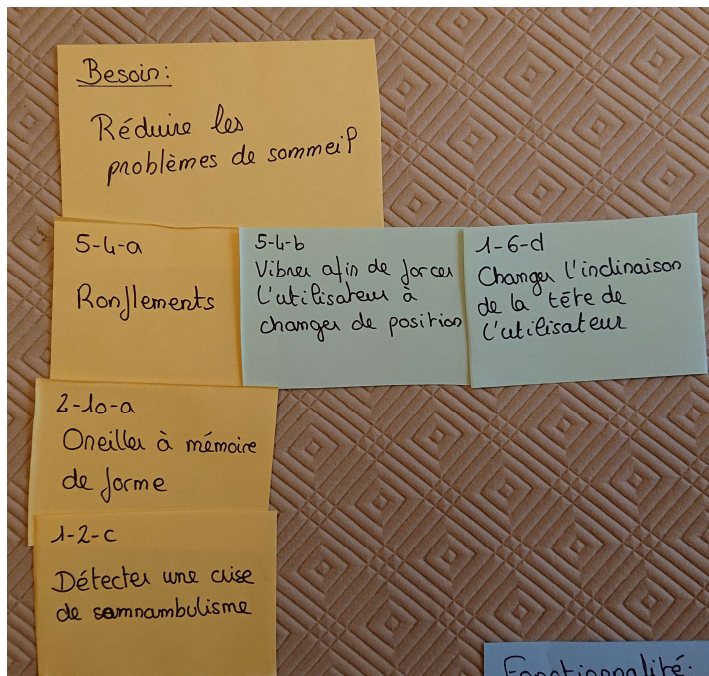 Besoin:
Réduire les
problèmes de sommeil
5-4-a
Ronflements
5-4-b
Vibrer afin de forcer
l'utilisateur à
changer de position
1-6-d
Changer l'inclinaison
de la tête de
l'utilisateur
2-10-a
Oreiller à mémoire
de forme
1-2-c
Détecter une crise
de somnambulisme
Fonctionnalité: